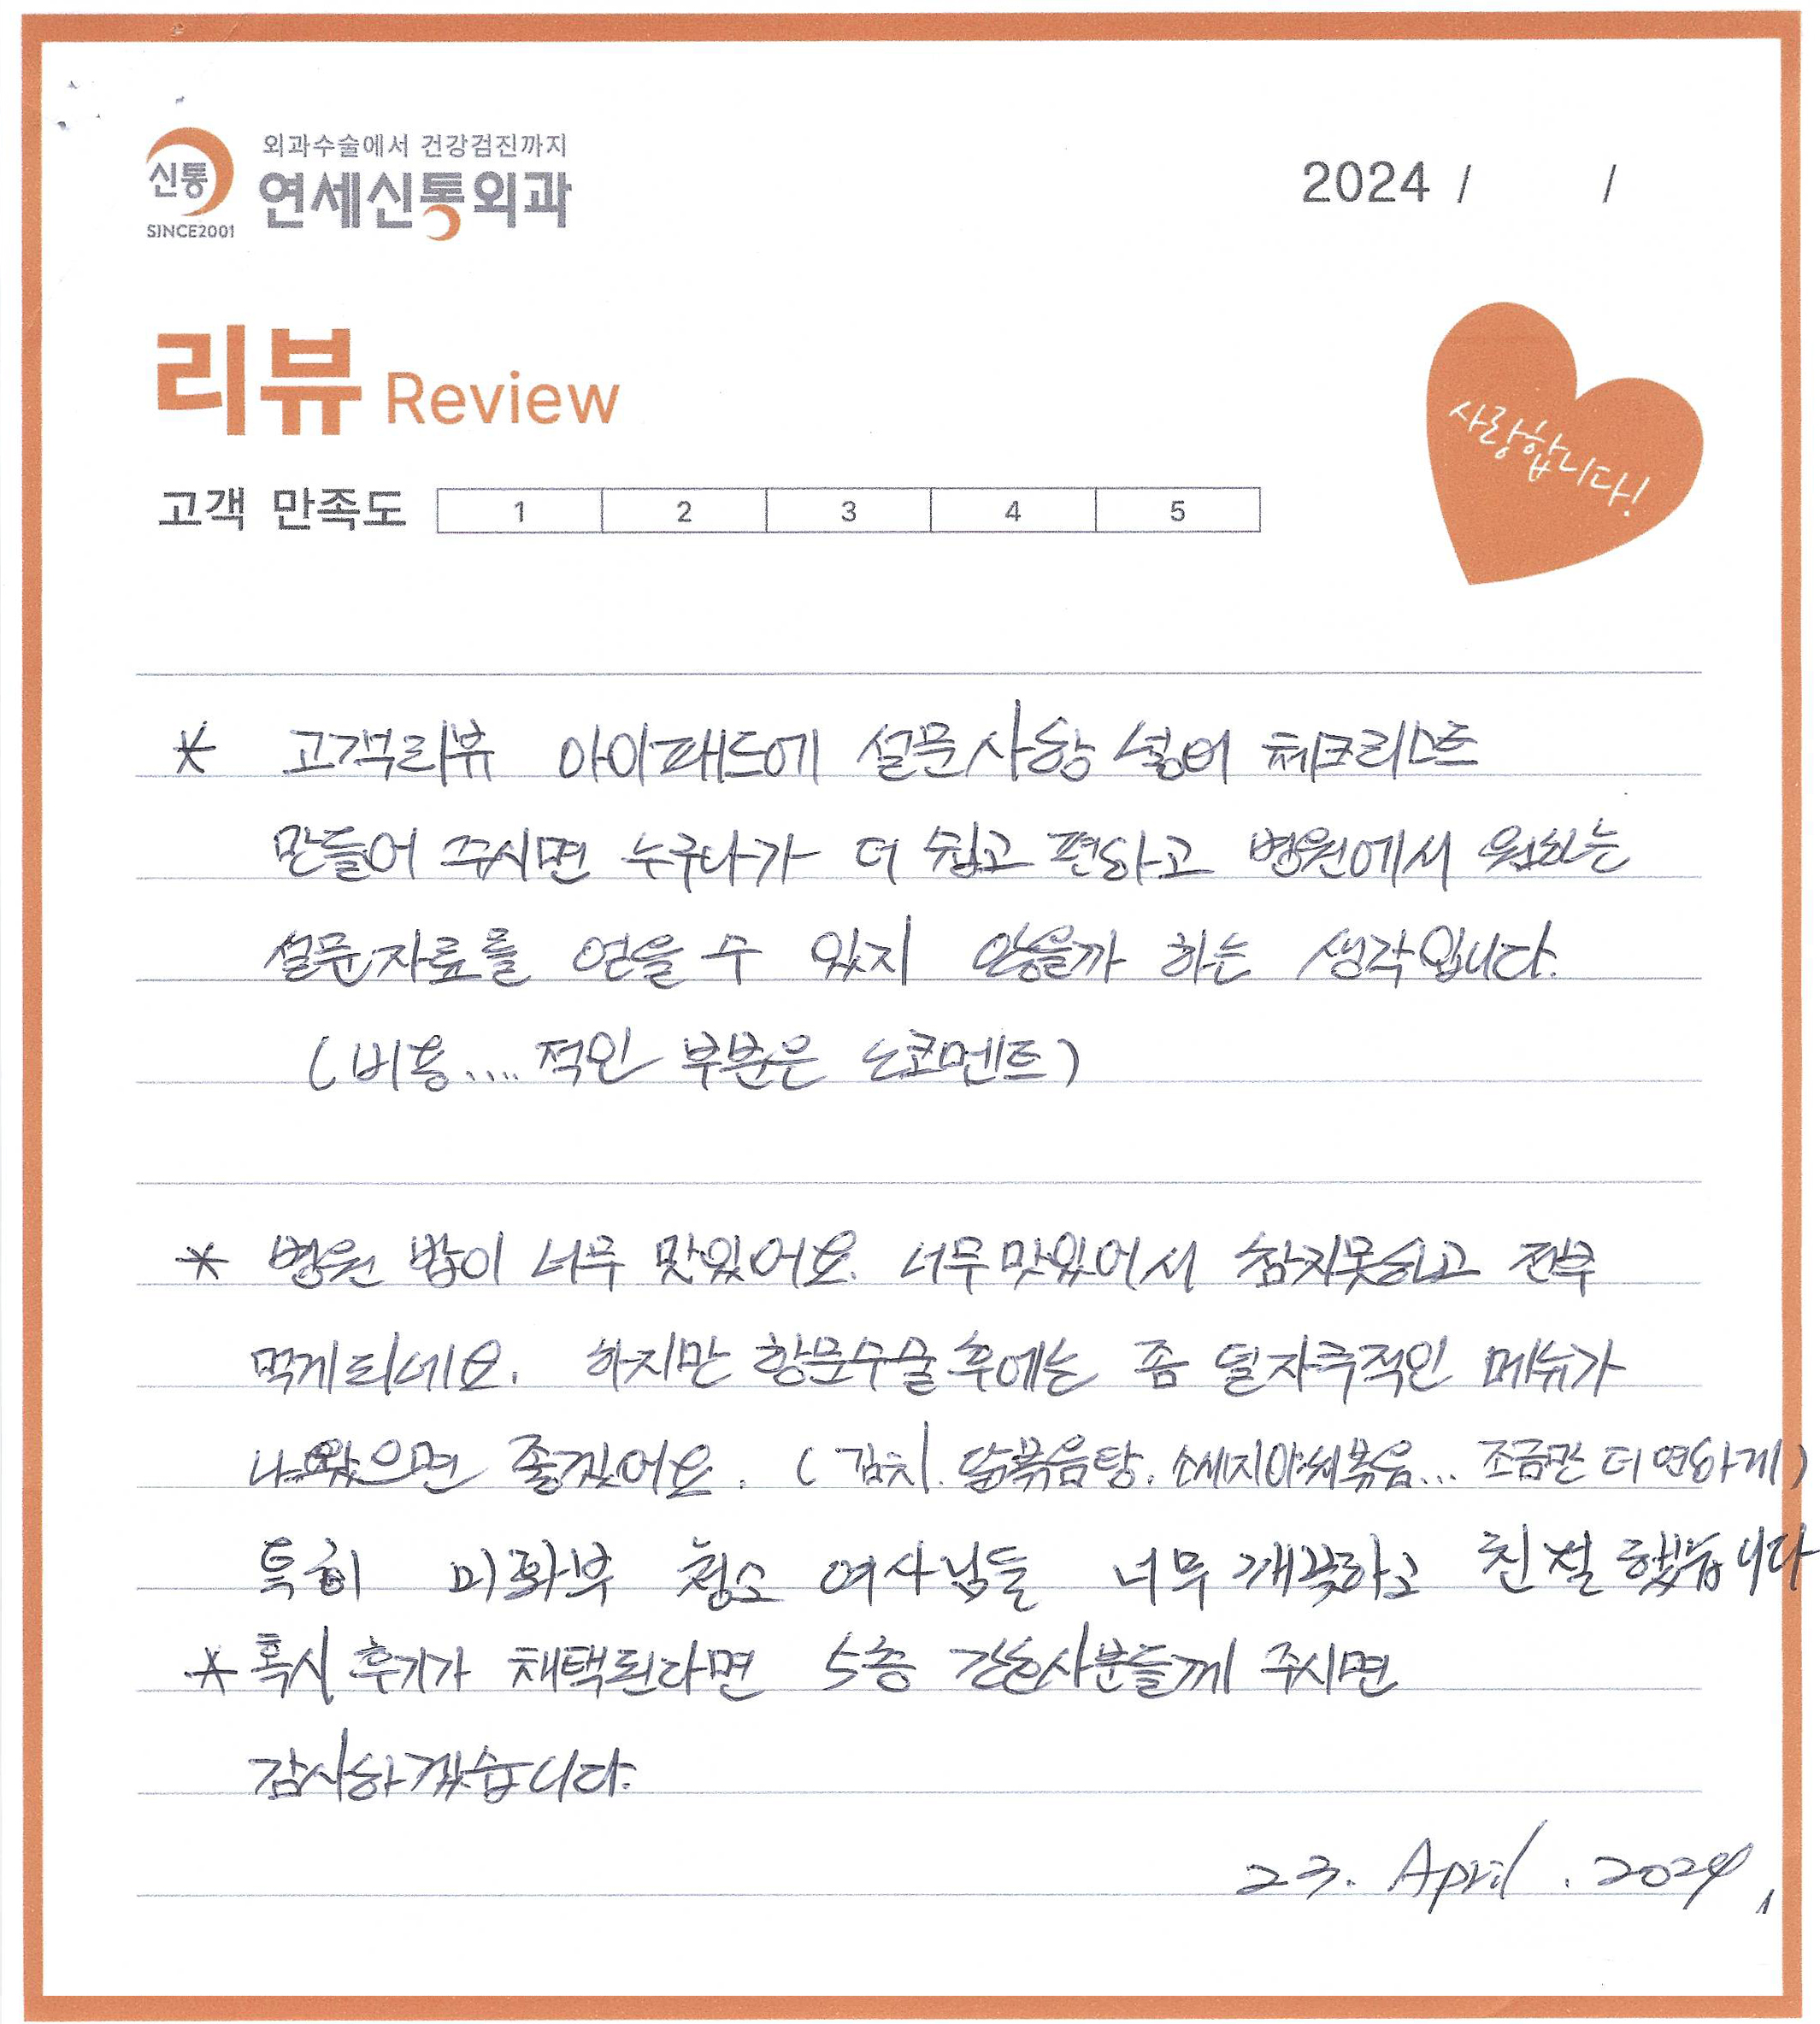 신통
SINCE2001
외과수술에서 건강검진까지
연세신통외과
2024 /      /
리뷰 Review
사랑합니다!
고객 만족도 1 2 3 4 5
* 고객리뷰 아이패드에 설문사항 넣어 체크리스트
만들어 주시면 누구나가 더 쉽고 편하고 병원에서 원하는
설문자료를 얻을 수 있지 않을까 하는 생각입니다.
(비용.... 적인 부분은 노코멘트)
* 병원 밥이 너무 맛있어요. 너무 맛있어서 참지못하고 전부
먹게되네요. 하지만 항문수술 후에는 좀 덜자극적인 메뉴가
나왔으면 좋겠어요. (김치. 닭볶음탕. 소세지야채볶음... 조금만 더 연하게)
특히 미화부 청소 여사님들 너무 깨끗하고 친절했습니다
* 혹시 후기가 채택된다면 5층 간호사분들께 주시면
감사하겠습니다.
23. April. 2024